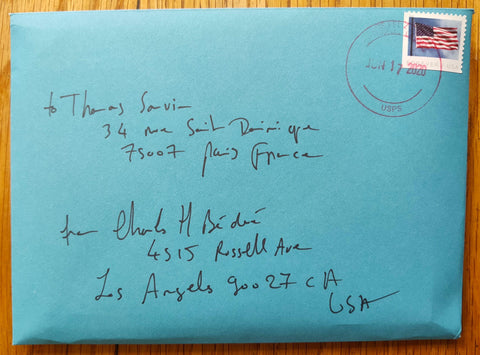 JUN 17 2020
USPS
to Thomas Sauvin
34 rue Saint Dominique
75007 Paris France
from Charles H Bédué
4515 Russell Ave
Los Angels 90027 CA
USA